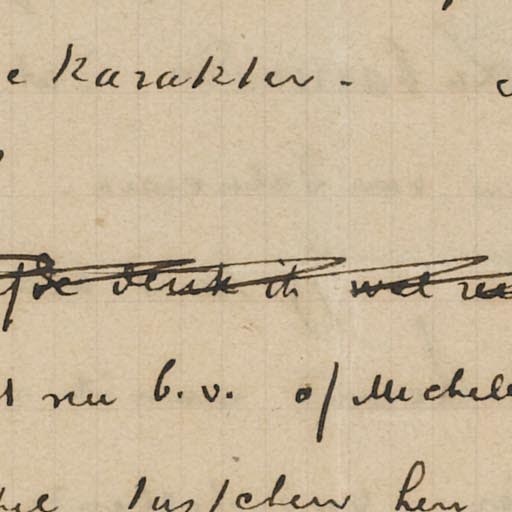 e karakter.
denk ik wel
nu b.v. of Michele
tusschen hen